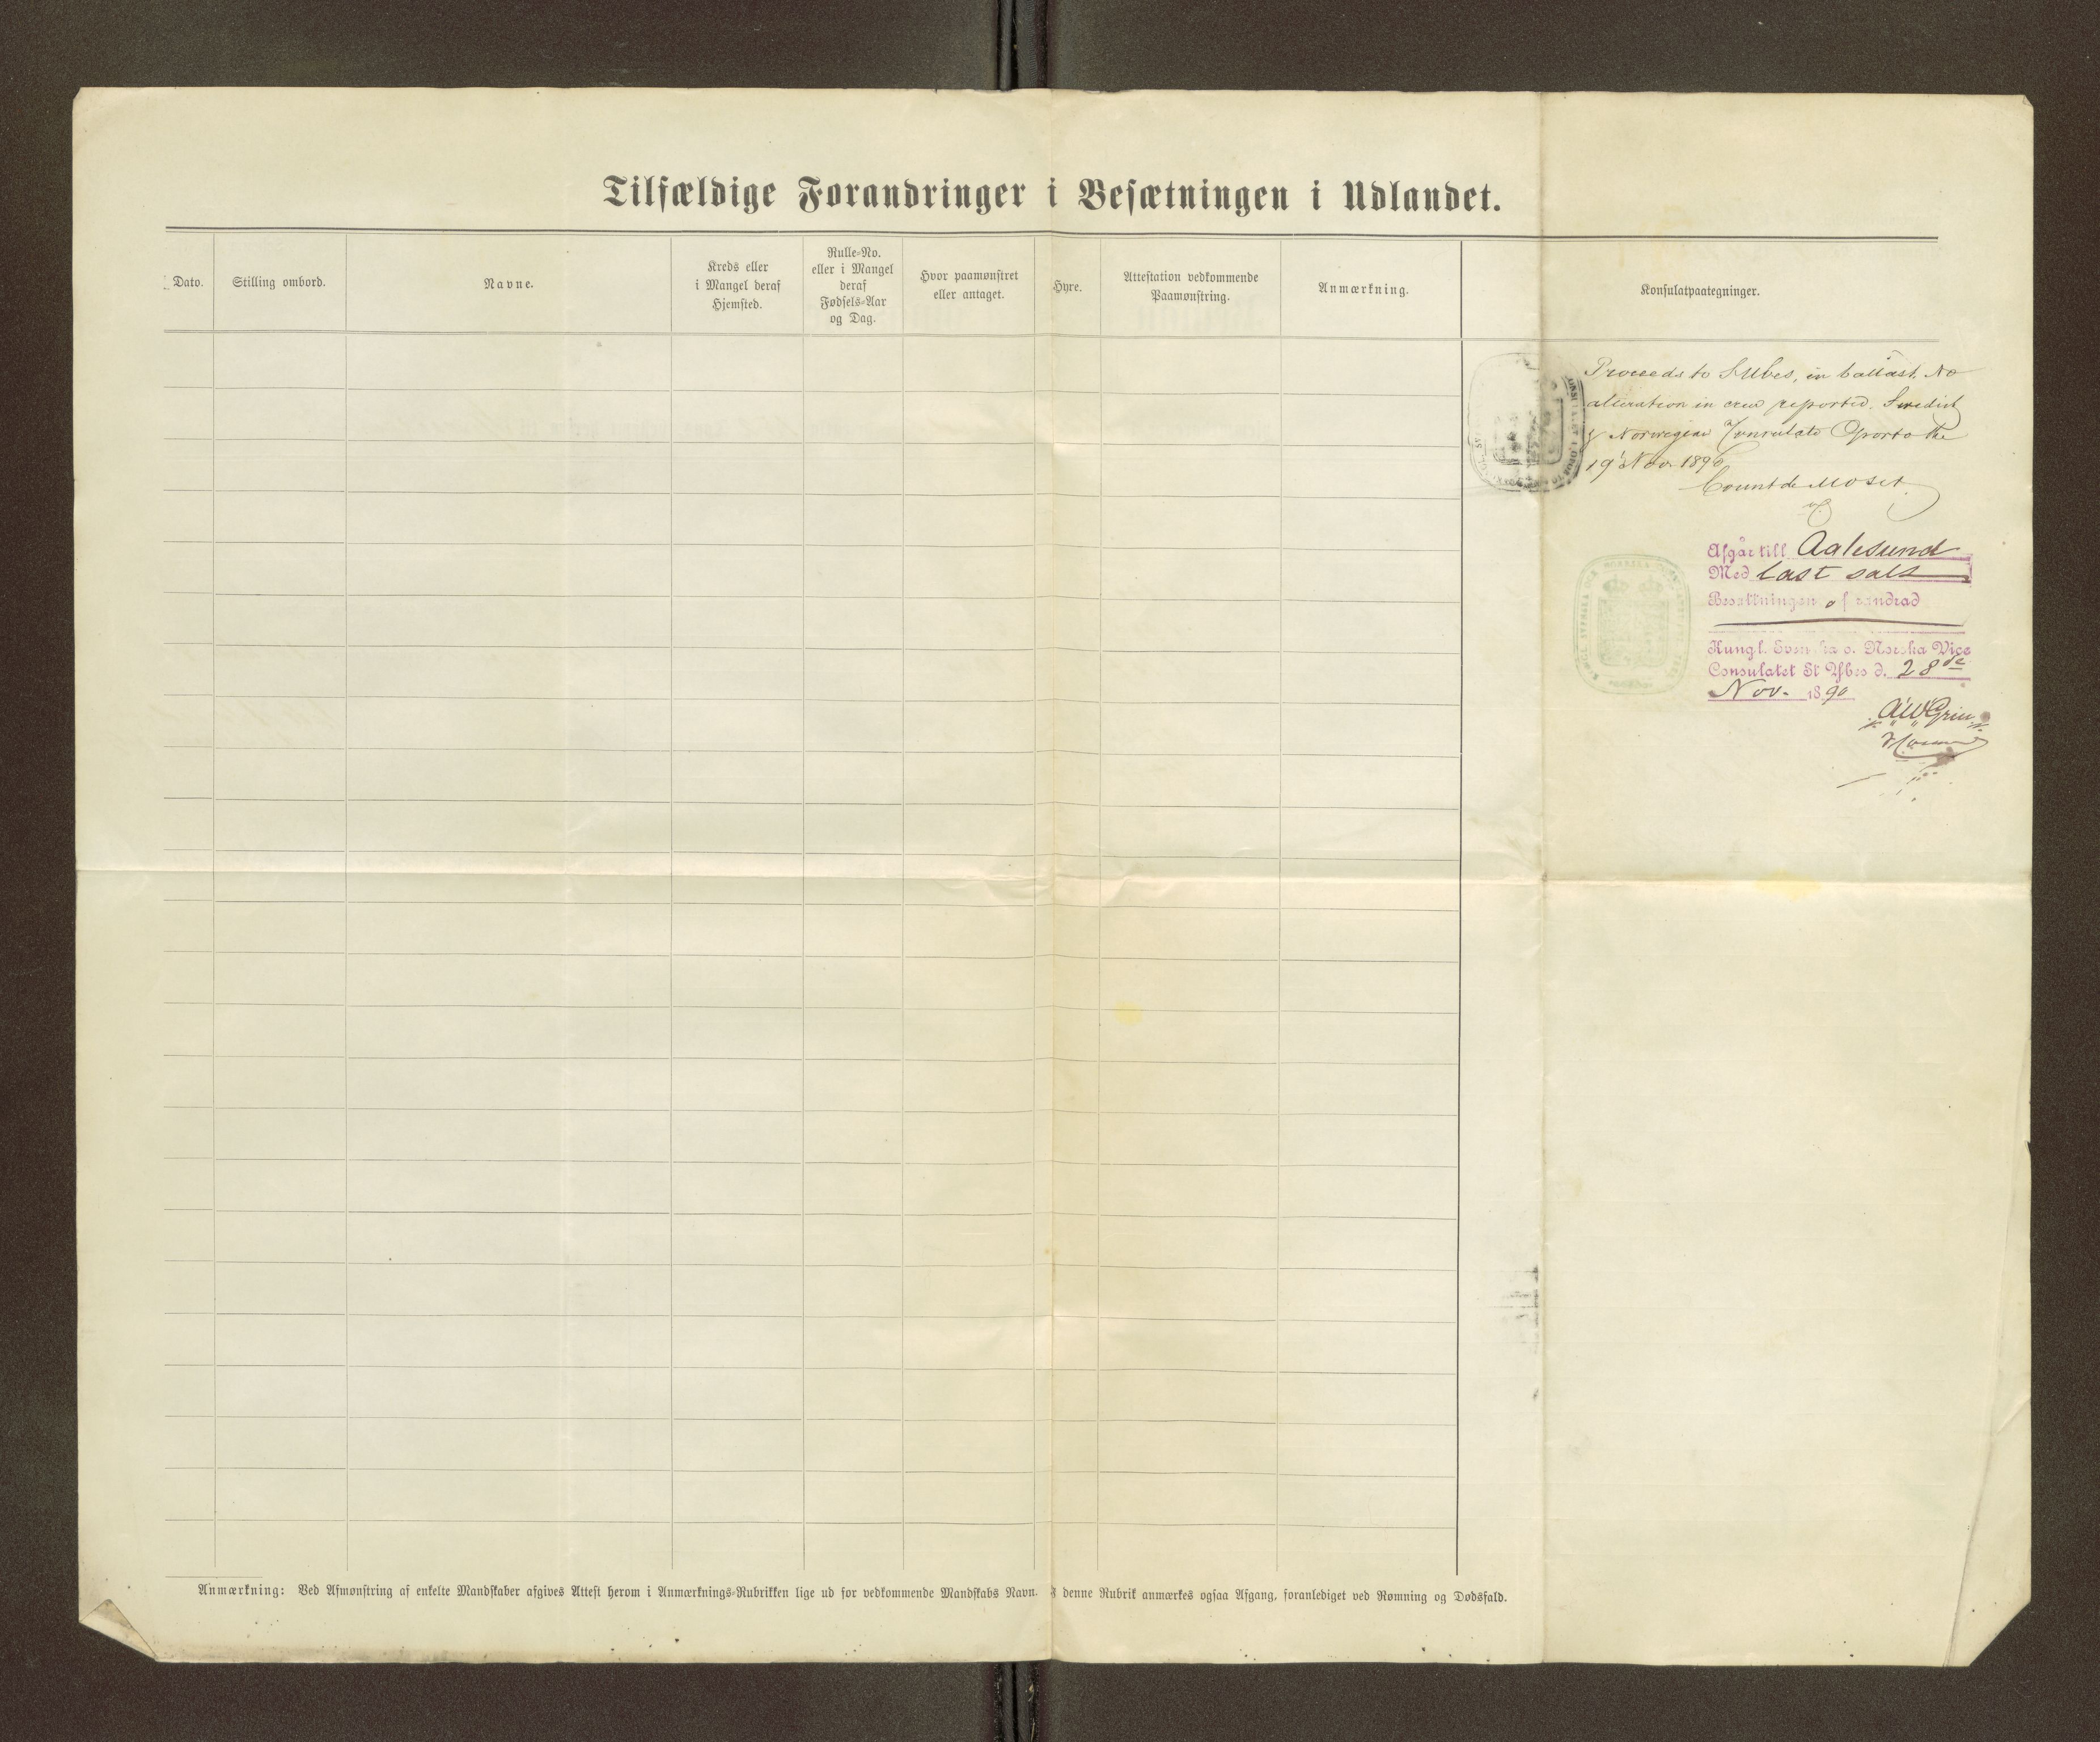 Tilfældige Forandringer i Besætningen i Udlandet.
Dato.
Stilling ombord.
Navne.
Kreds eller
i Mangel deraf
Hjemsted.
Rulle-No.
eller i Mangel
deraf
Fødsels-Aar
og Dag.
Hvor paamønstret
eller antaget.
Hyre.
Attestation vedkommende
Paamønstring.
Anmærkning.
Konsulatpaategninger.
Proceeds to St Ubes, in ballast. No
alteration in crew reported. Swedish
& Norwegian Consulate Oporto the
19 Nov. 1890
Count de
Afgår till Aalesund
Med last salt
Besättningen oförändrad
Kungl. Svenska o. Norska Vice
Consulatet St Ybes d. 28de
Nov. 1890
Anmærkning: Ved Afmønstring af enkelte Mandskaber afgives Attest herom i Anmærknings-Rubrikken lige ud for vedkommende Mandskabs Navn. I denne Rubrik anmærkes ogsaa Afgang, foranlediget ved Rømning og Dødsfald.